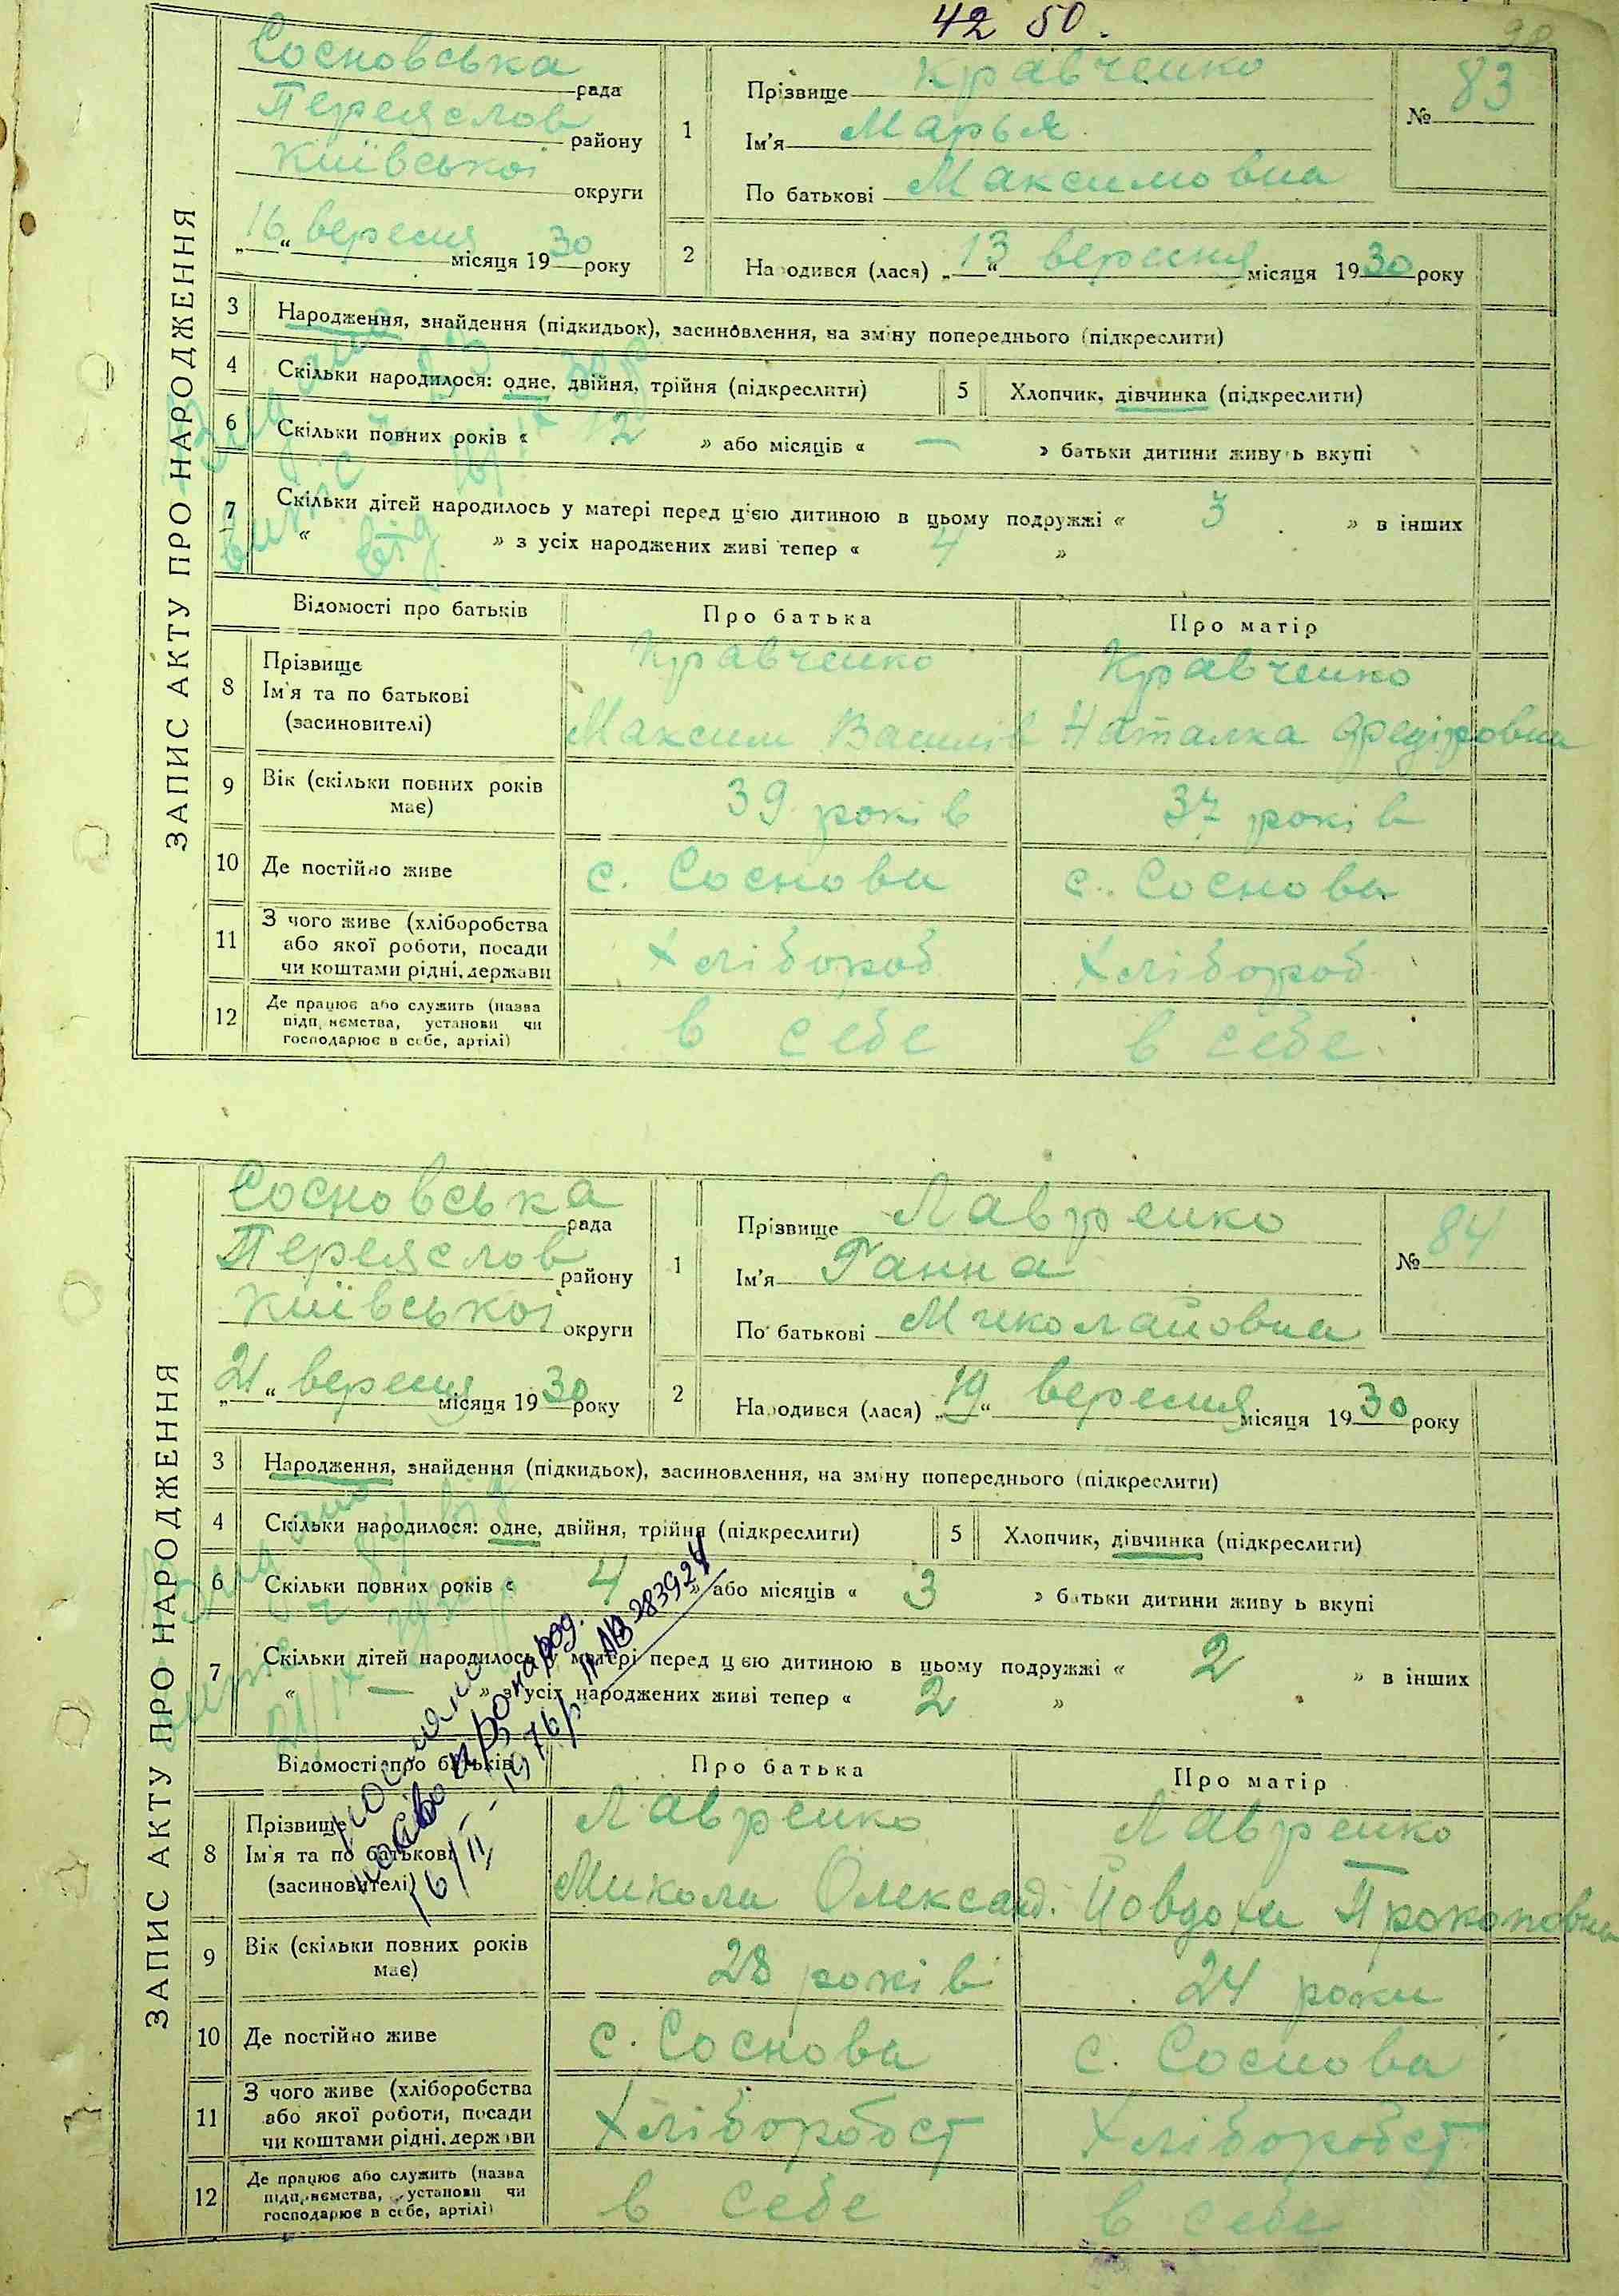 42 50.
Сосновська
рада
Переяслов
району
Київської
округи
„16“ вересня місяця 1930 року
1
Прізвище Кравченко
Ім'я Марья
По батькові Максимовна
№ 83
2
Народився (лася) „13“ вересня місяця 1930 року
ЗАПИС АКТУ ПРО НАРОДЖЕННЯ
3 Народження, знайдення (підкидьок), засиновлення, на зміну попереднього (підкреслити)
4 Скільки народилося: одне, двійня, трійня (підкреслити) 5 Хлопчик, дівчинка (підкреслити)
6 Скільки повних років « 12 » або місяців « — » батьки дитини живуть вкупі
7 Скільки дітей народилось у матері перед цією дитиною в цьому подружжі « 3 » в інших
« — » з усіх народжених живі тепер « 4 »
Відомості про батьків Про батька Про матір
8 Прізвище Кравченко Кравченко
Ім'я та по батькові Максим Василів Наталка Федіровна
(засиновителі)
9 Вік (скільки повних років має) 39 років 37 років
10 Де постійно живе с. Соснова с. Соснова
11 З чого живе (хліборобства
або якої роботи, посади Хлібороб Хлібороб
чи коштами рідні, держави
12 Де працює або служить (назва
підприємства, установи чи в себе в себе
господарює в себе, артілі)
Сосновська
рада
Переяслов
району
Київської
округи
„21“ вересня місяця 1930 року
1
Прізвище Лавренко
Ім'я Ганна
По батькові Миколайовна
№ 84
2
Народився (лася) „19“ вересня місяця 1930 року
ЗАПИС АКТУ ПРО НАРОДЖЕННЯ
3 Народження, знайдення (підкидьок), засиновлення, на зміну попереднього (підкреслити)
4 Скільки народилося: одне, двійня, трійня (підкреслити) 5 Хлопчик, дівчинка (підкреслити)
6 Скільки повних років « 4 » або місяців « 3 » батьки дитини живуть вкупі
7 Скільки дітей народилось у матері перед цією дитиною в цьому подружжі « 2 » в інших
« — » з усіх народжених живі тепер « 2 »
Відомості про батьків Про батька Про матір
8 Прізвище Лавренко Лавренко
Ім'я та по батькові Микола Олександ. Йовдоха Прокоповна
(засиновителі)
9 Вік (скільки повних років має) 28 років 24 роки
10 Де постійно живе с. Соснова с. Соснова
11 З чого живе (хліборобства
або якої роботи, посади Хліборобст Хліборобст
чи коштами рідні, держави
12 Де працює або служить (назва
підприємства, установи чи в себе в себе
господарює в себе, артілі)